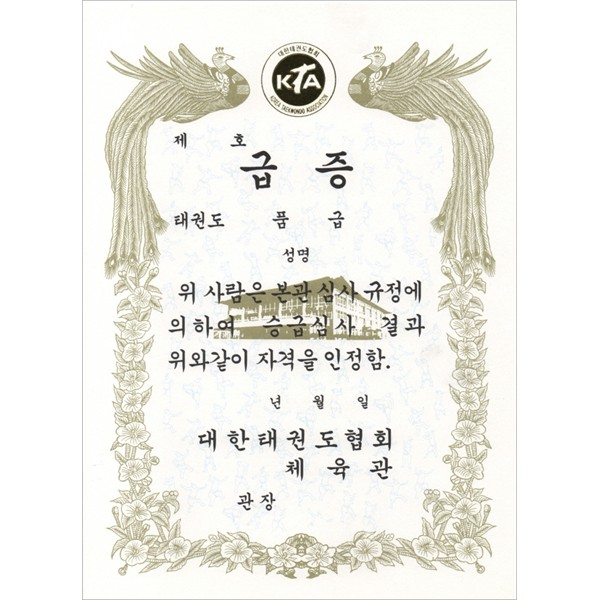 대한태권도협회
KTA
KOREA TAEKWONDO ASSOCIATION
제 호
급 증
태권도 품 급
성명
위 사람은 본관 심사 규정에
의하여 승급심사 결과
위와같이 자격을 인정함.
년 월 일
대한태권도협회
체육관
관장